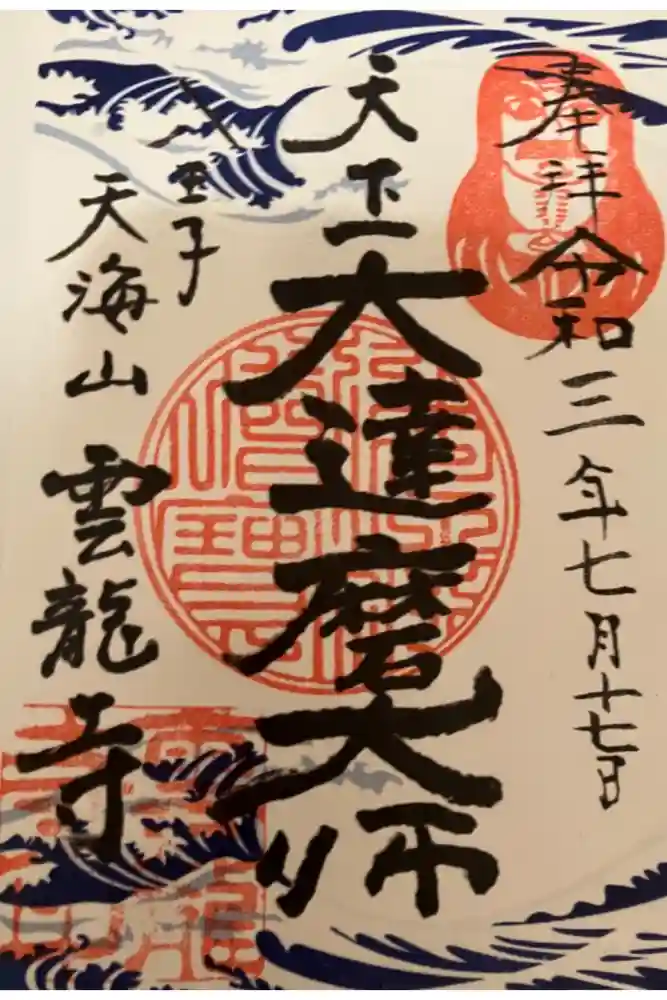 奉拝 令和三年七月十七日
天下一
大達磨大師
八王子
天海山 雲龍寺
雲龍
寺印